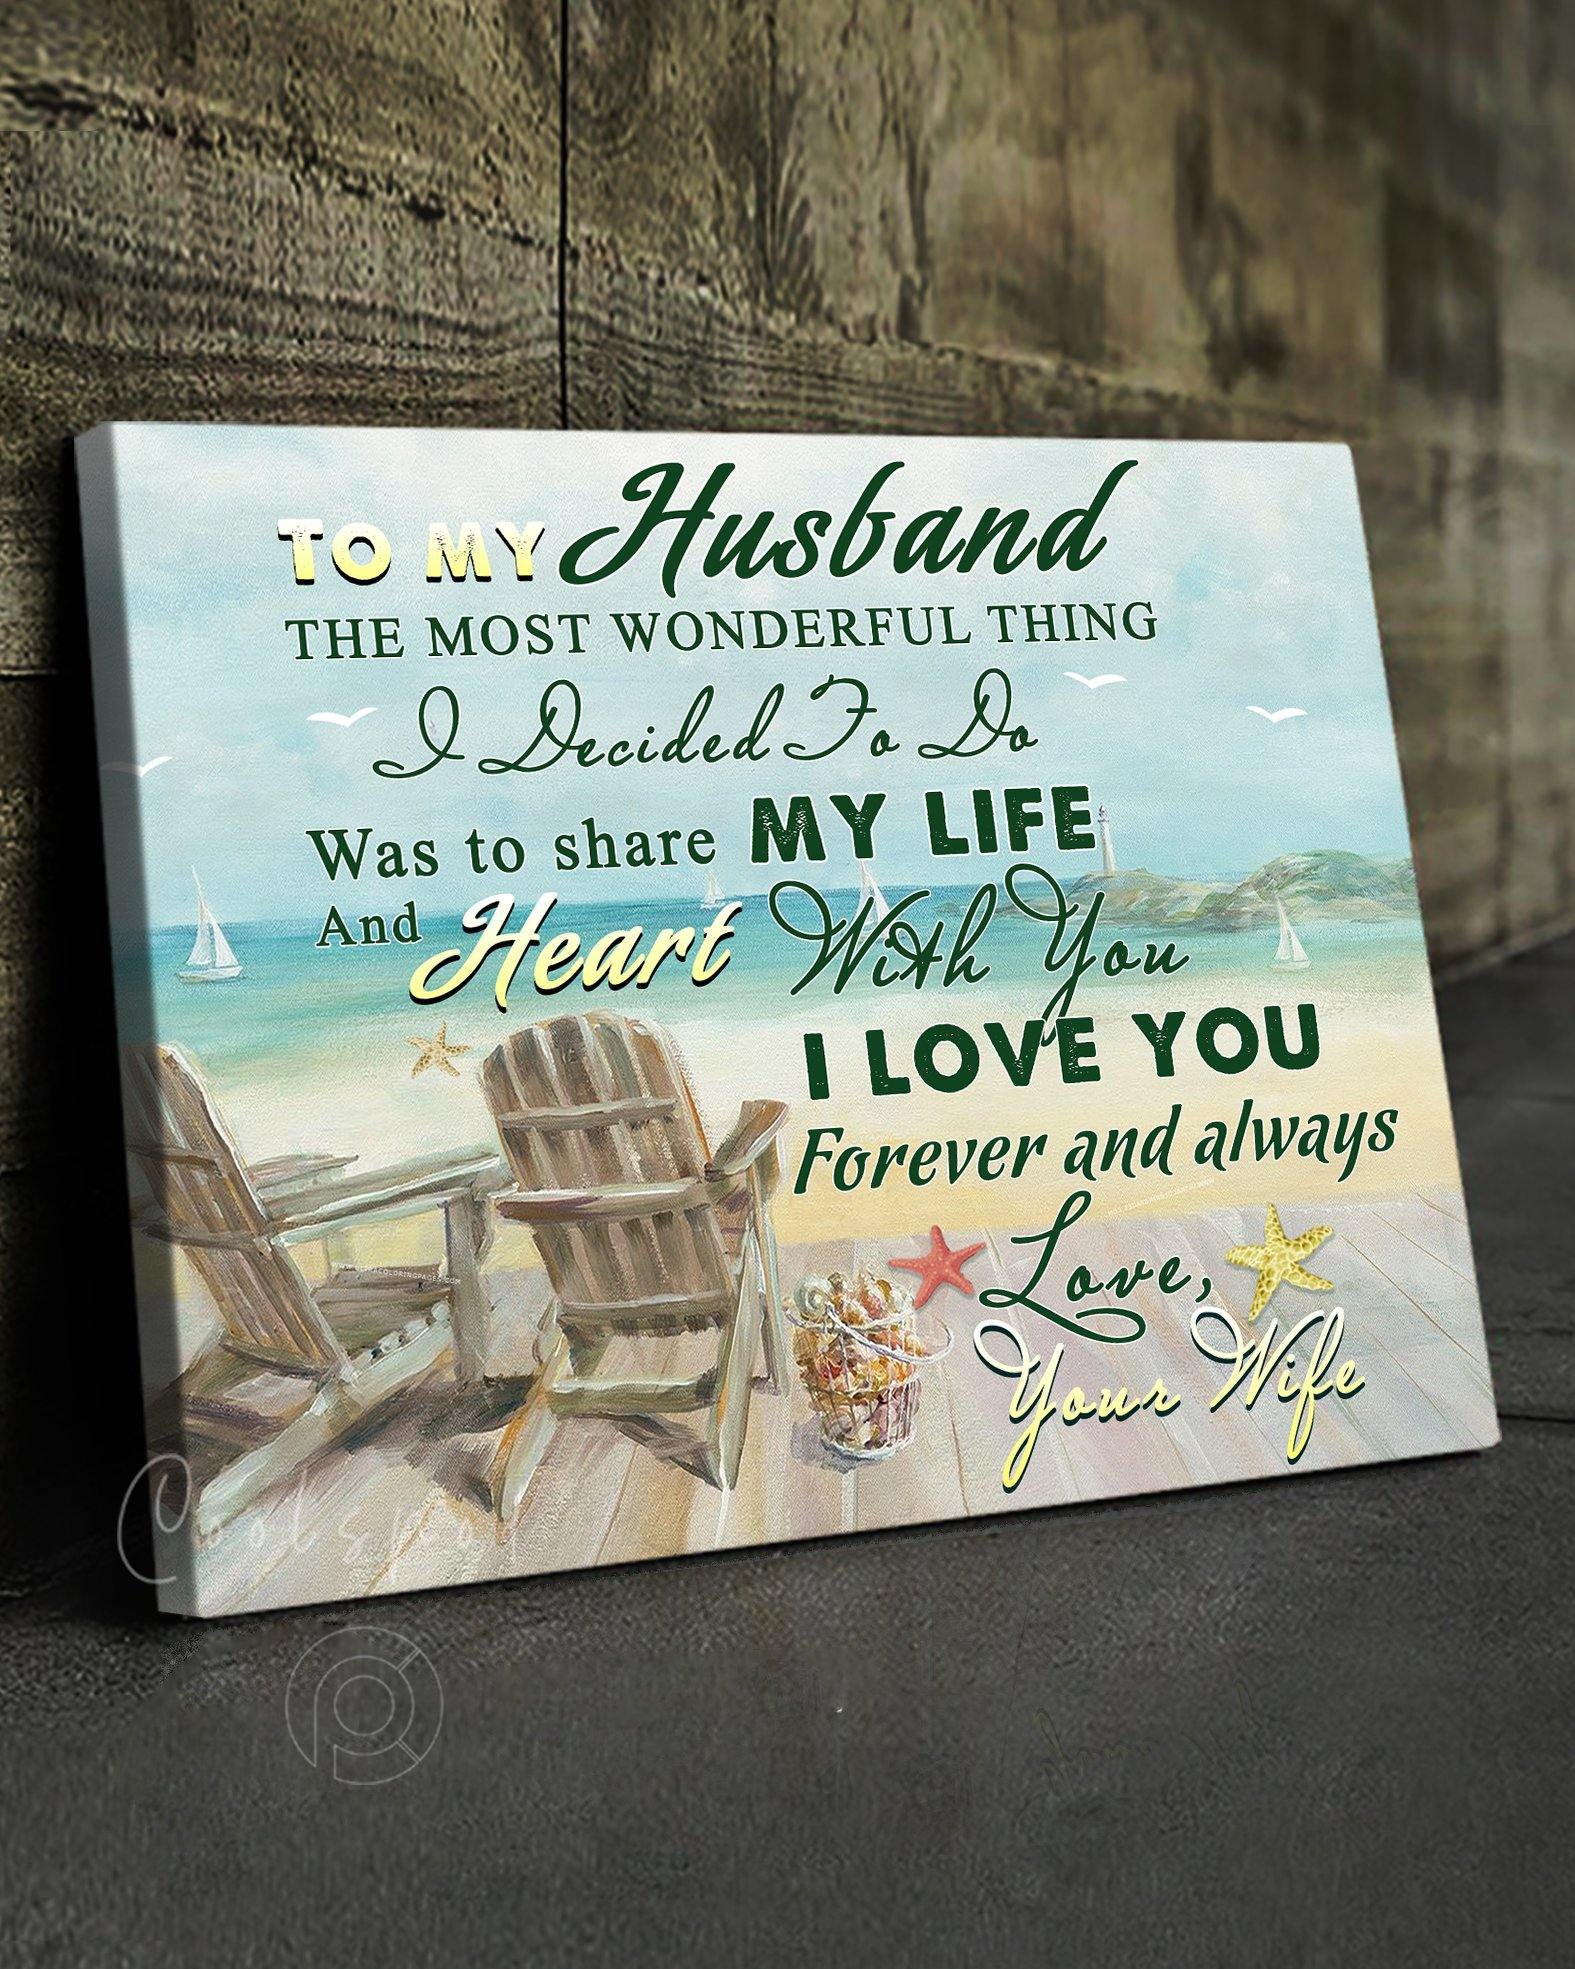 TO MY Husband
THE MOST WONDERFUL THING
I Decided To Do
Was to share MY LIFE
And Heart With You
I LOVE YOU
Forever and always
Love,
Your Wife
Coolshop